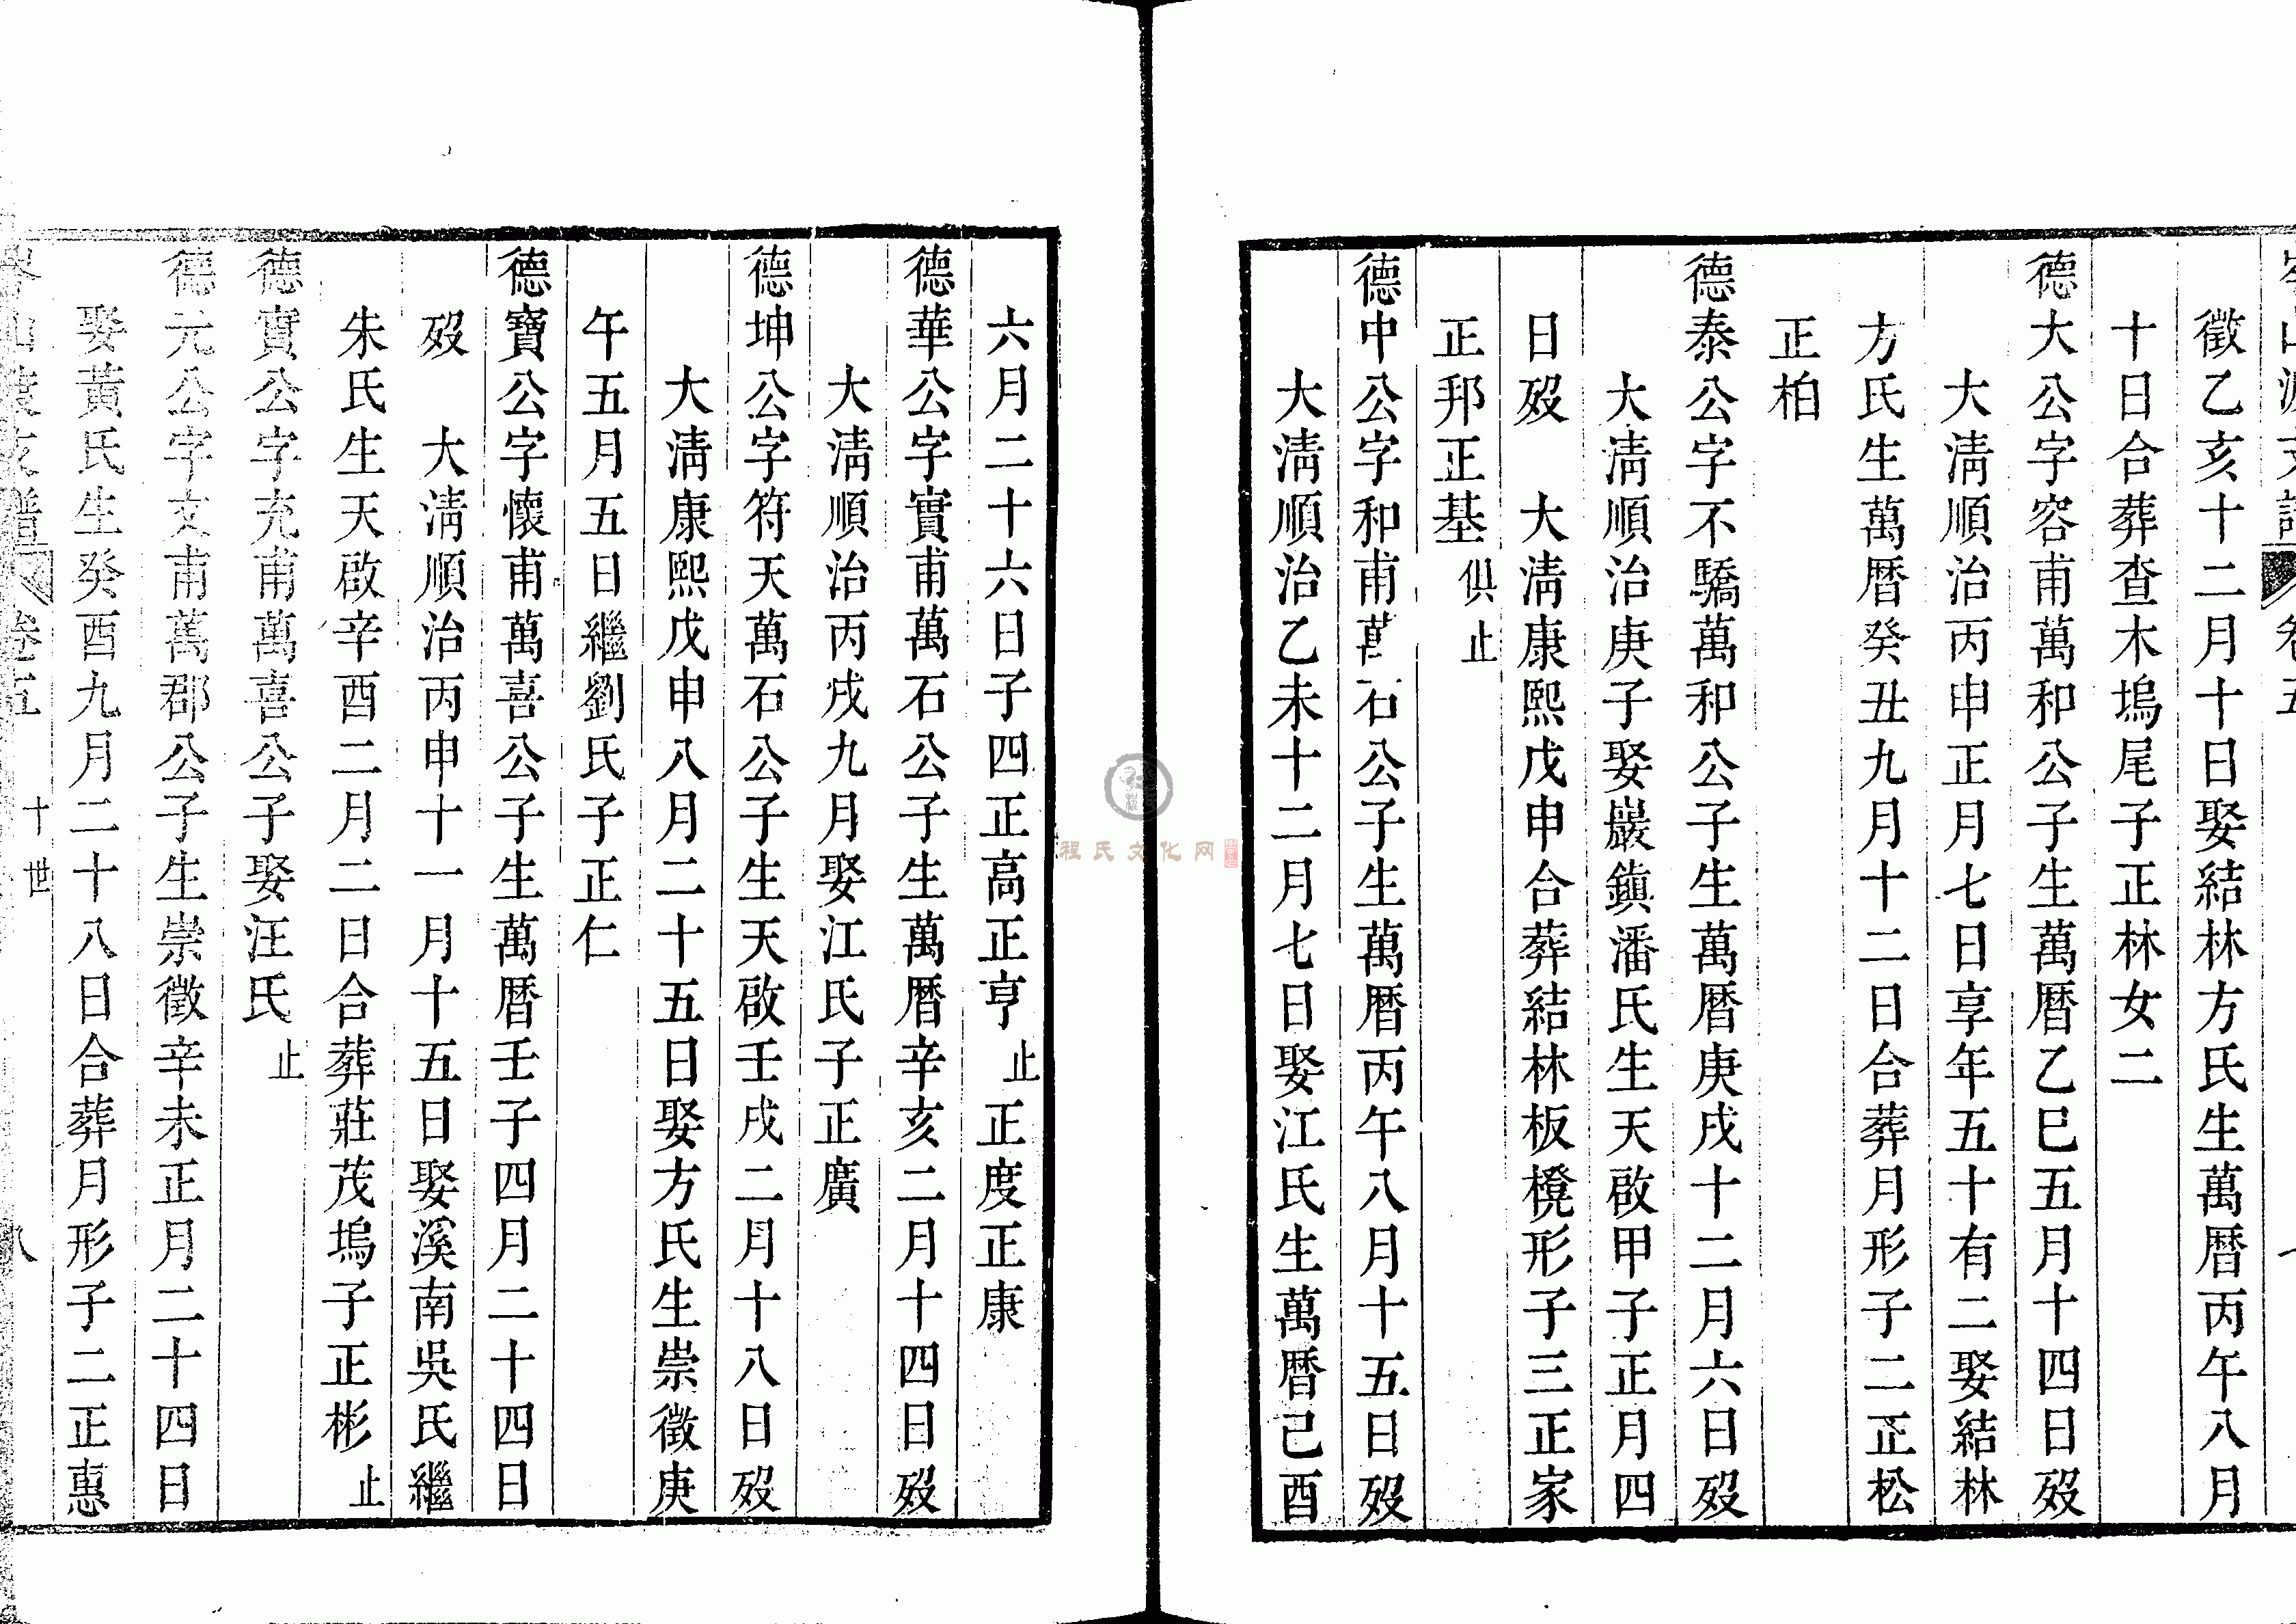 徵乙亥十二月十日娶結林方氏生萬曆丙午八月
十日合葬查木塢尾子正林女二
德大公字容甫萬和公子生萬曆乙巳五月十四日歿
大淸順治丙申正月七日享年五十有二娶結林
方氏生萬曆癸丑九月十二日合葬月形子二正松
正柏
德泰公字不驕萬和公子生萬曆庚戌十二月六日歿
大淸順治庚子娶巖鎭潘氏生天啟甲子正月四
日歿 大淸康熙戊申合葬結林板櫈形子三正家
正邦正基俱止
德中公字和甫萬石公子生萬曆丙午八月十五日歿
大淸順治乙未十二月七日娶江氏生萬曆己酉
六月二十六日子四正高正亨止正度正康
德華公字實甫萬石公子生萬曆辛亥二月十四日歿
大淸順治丙戌九月娶江氏子正廣
德坤公字符天萬石公子生天啟壬戌二月十八日歿
大淸康熙戊申八月二十五日娶方氏生崇徵庚
午五月五日繼劉氏子正仁
德寶公字懷甫萬喜公子生萬曆壬子四月二十四日
歿 大淸順治丙申十一月十五日娶溪南吳氏繼
朱氏生天啟辛酉二月二日合葬莊茂塢子正彬止
德實公字充甫萬喜公子娶汪氏止
德元公字文甫萬郡公子生崇徵辛未正月二十四日
娶黃氏生癸酉九月二十八日合葬月形子二正惠
支譜 卷五 十世 八
程氏文化网